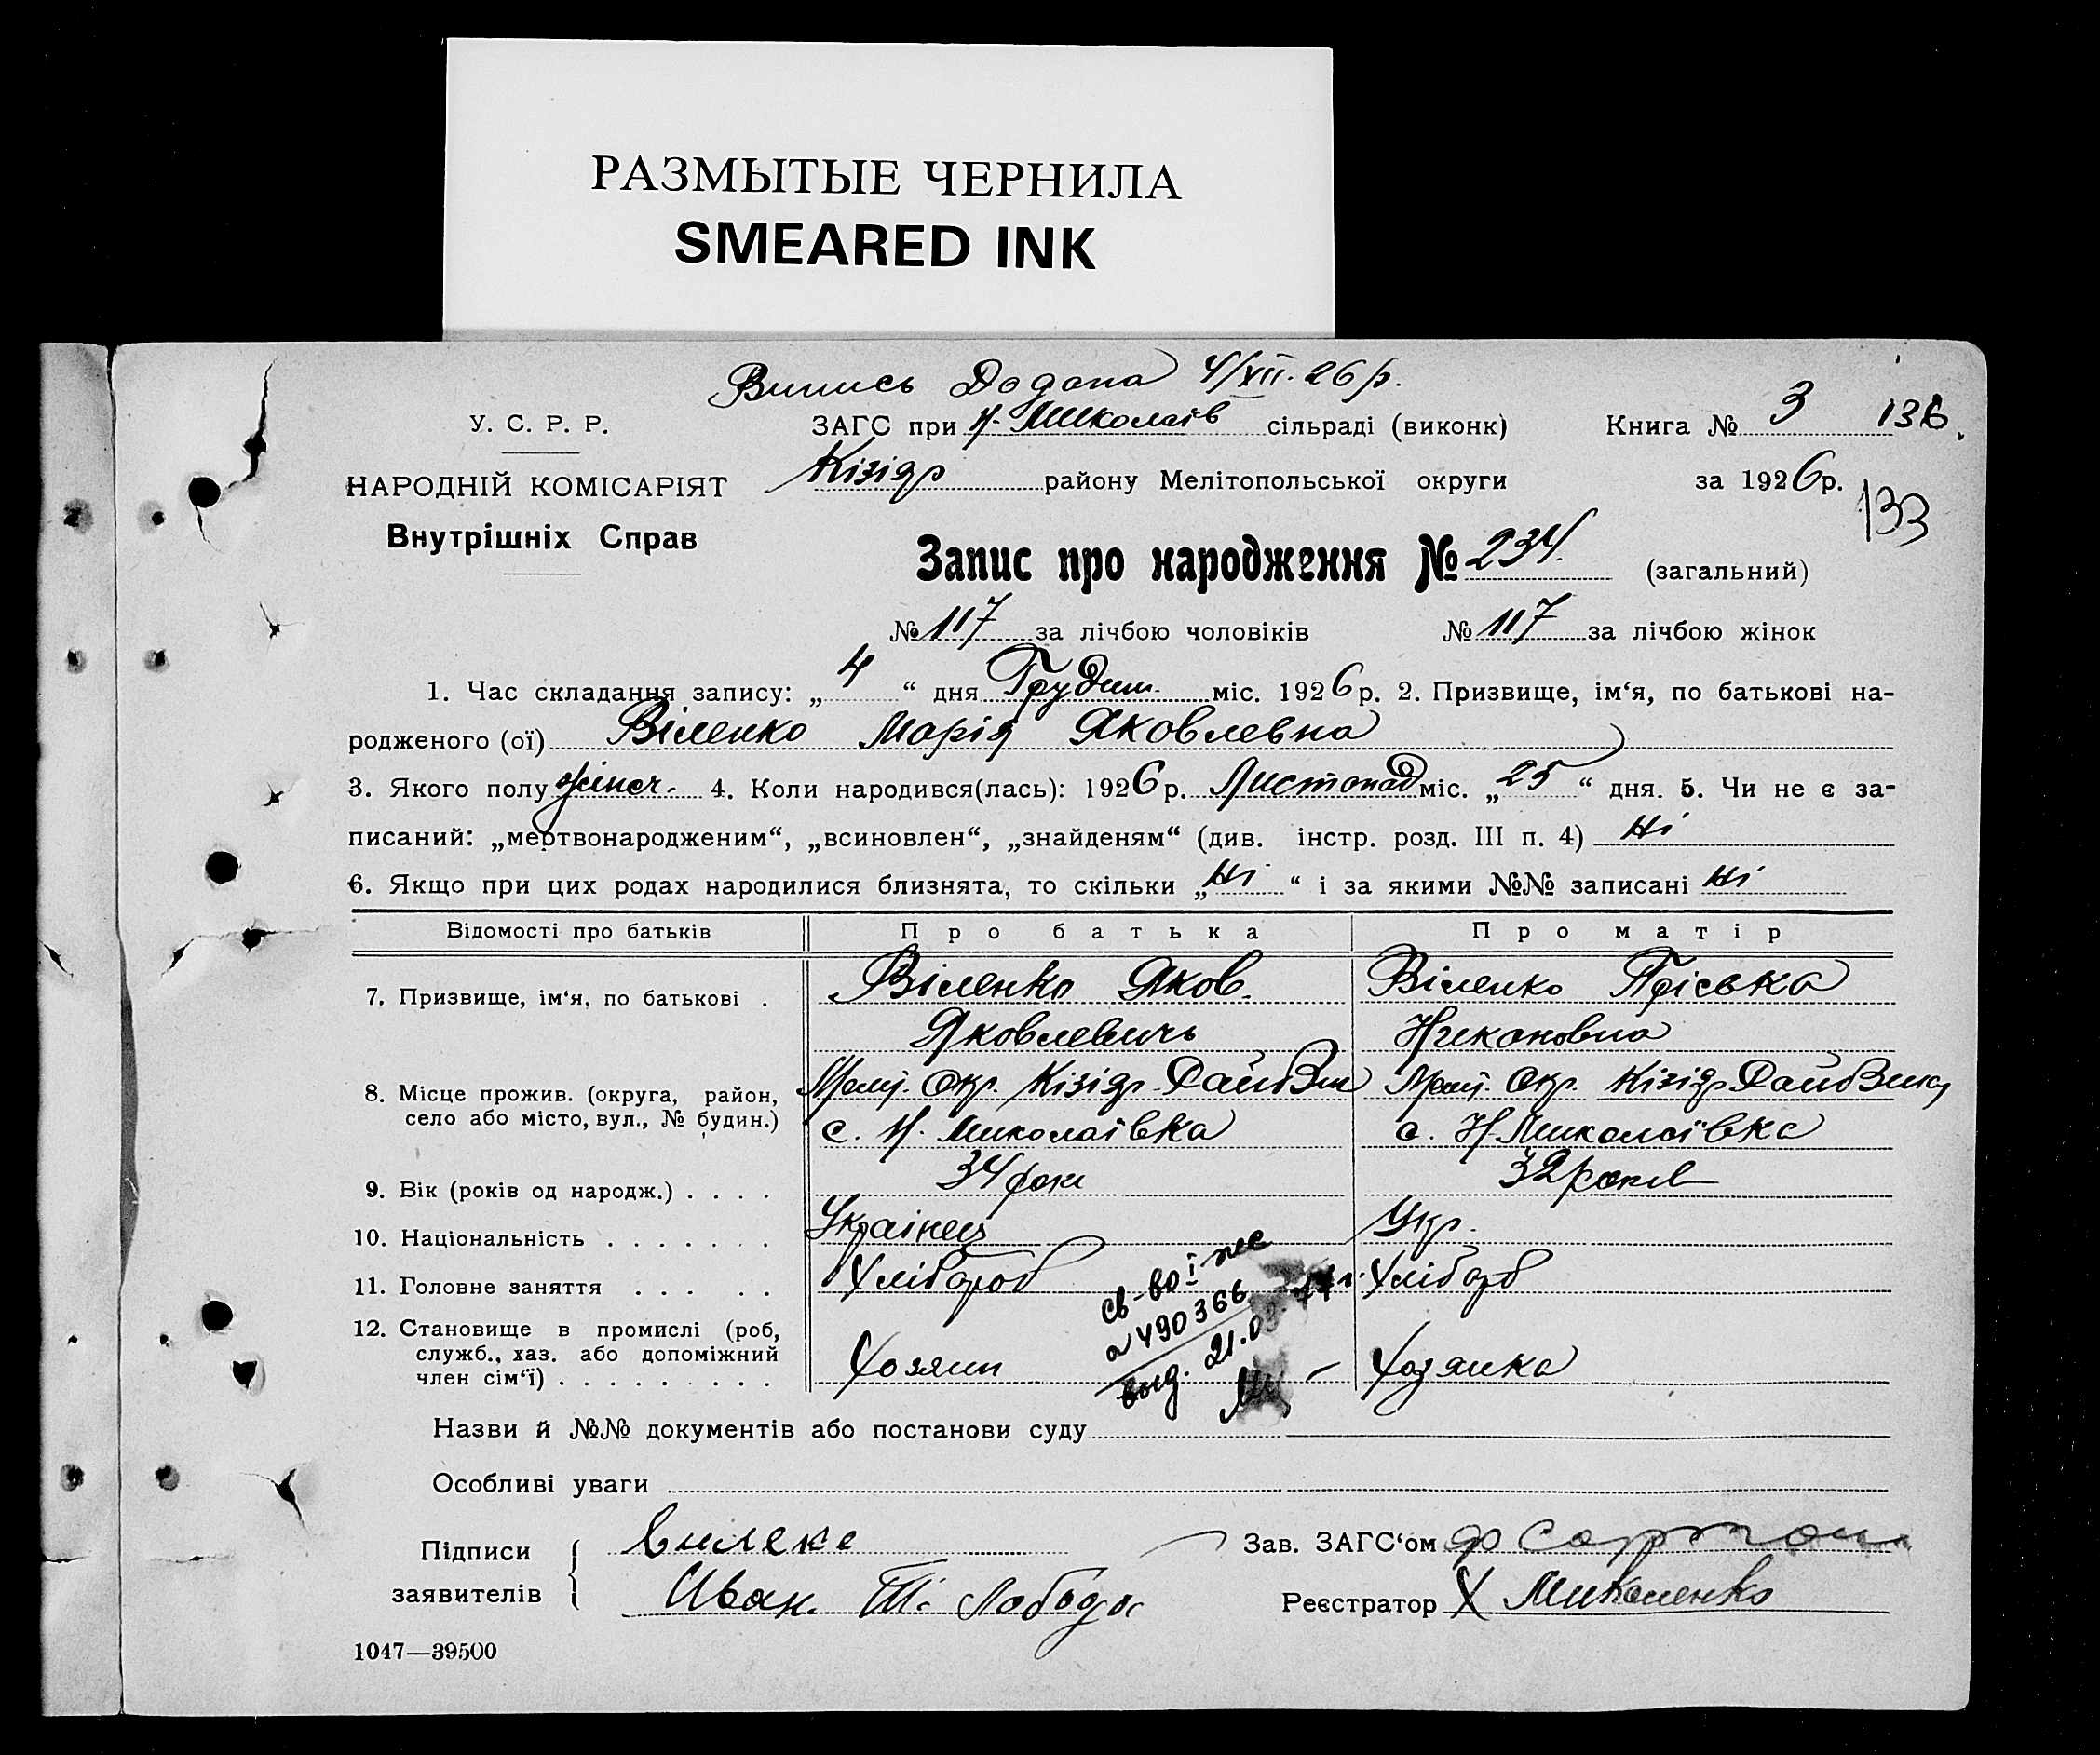 РАЗМЫТЫЕ ЧЕРНИЛА
SMEARED INK
Випись Додана 4/XII. 26 р.
У. С. Р. Р.
ЗАГС при Н. Миколаїв сільраді (виконк)
Книга № 3
136.
НАРОДНІЙ КОМІСАРІЯТ
Кізіяр району Мелітопольської округи
за 1926р.
133
Внутрішніх Справ
Запис про народження № 234. (загальний)
№ 117 за лічбою чоловіків № 117 за лічбою жінок
1. Час складання запису: „ 4 “ дня Грудни міс. 1926 р. 2. Призвище, ім‘я, по батькові на-
родженого (ої) Віленко Марія Яковлевна
3. Якого полу жіноч. 4. Коли народився(лась): 1926 р. Листопад міс. „ 25 “ дня. 5. Чи не є за-
писаний: „мертвонародженим“, „всиновлен“, „знайденям“ (див. інстр. розд. III п. 4) Ні
6. Якщо при цих родах народилися близнята, то скільки „ Ні “ і за якими №№ записані Ні
Відомості про батьків Про батька Про матір
7. Призвище, ім‘я, по батькові . Віленко Яков. Віленко Пріська
Яковлевичь
8. Місце прожив. (округа, район, Меліт. Окр. Кізіяр Меліт. Окр. Кізіяр
село або місто, вул., № будин.) с. Н. Миколаівка с. Н. Миколаівка
9. Вік (років од народж.) . . . . 34 роки 32 років
10. Національність . . . . . . . Українец Укр.
11. Головне заняття . . . . . Хлібороб Хлібороб
св-во і же
490366
выд. 21.0
12. Становище в промислі (роб,
служб., хаз. або допоміжний Хозяин Хозяика
член сім‘ї) . . . . . . . . .
Назви й №№ документів або постанови суду
Особливі уваги
Підписи Вилеке Зав. ЗАГС‘ом
заявителів Иван. Лобода Реєстратор Х Миколенко
1047—39500